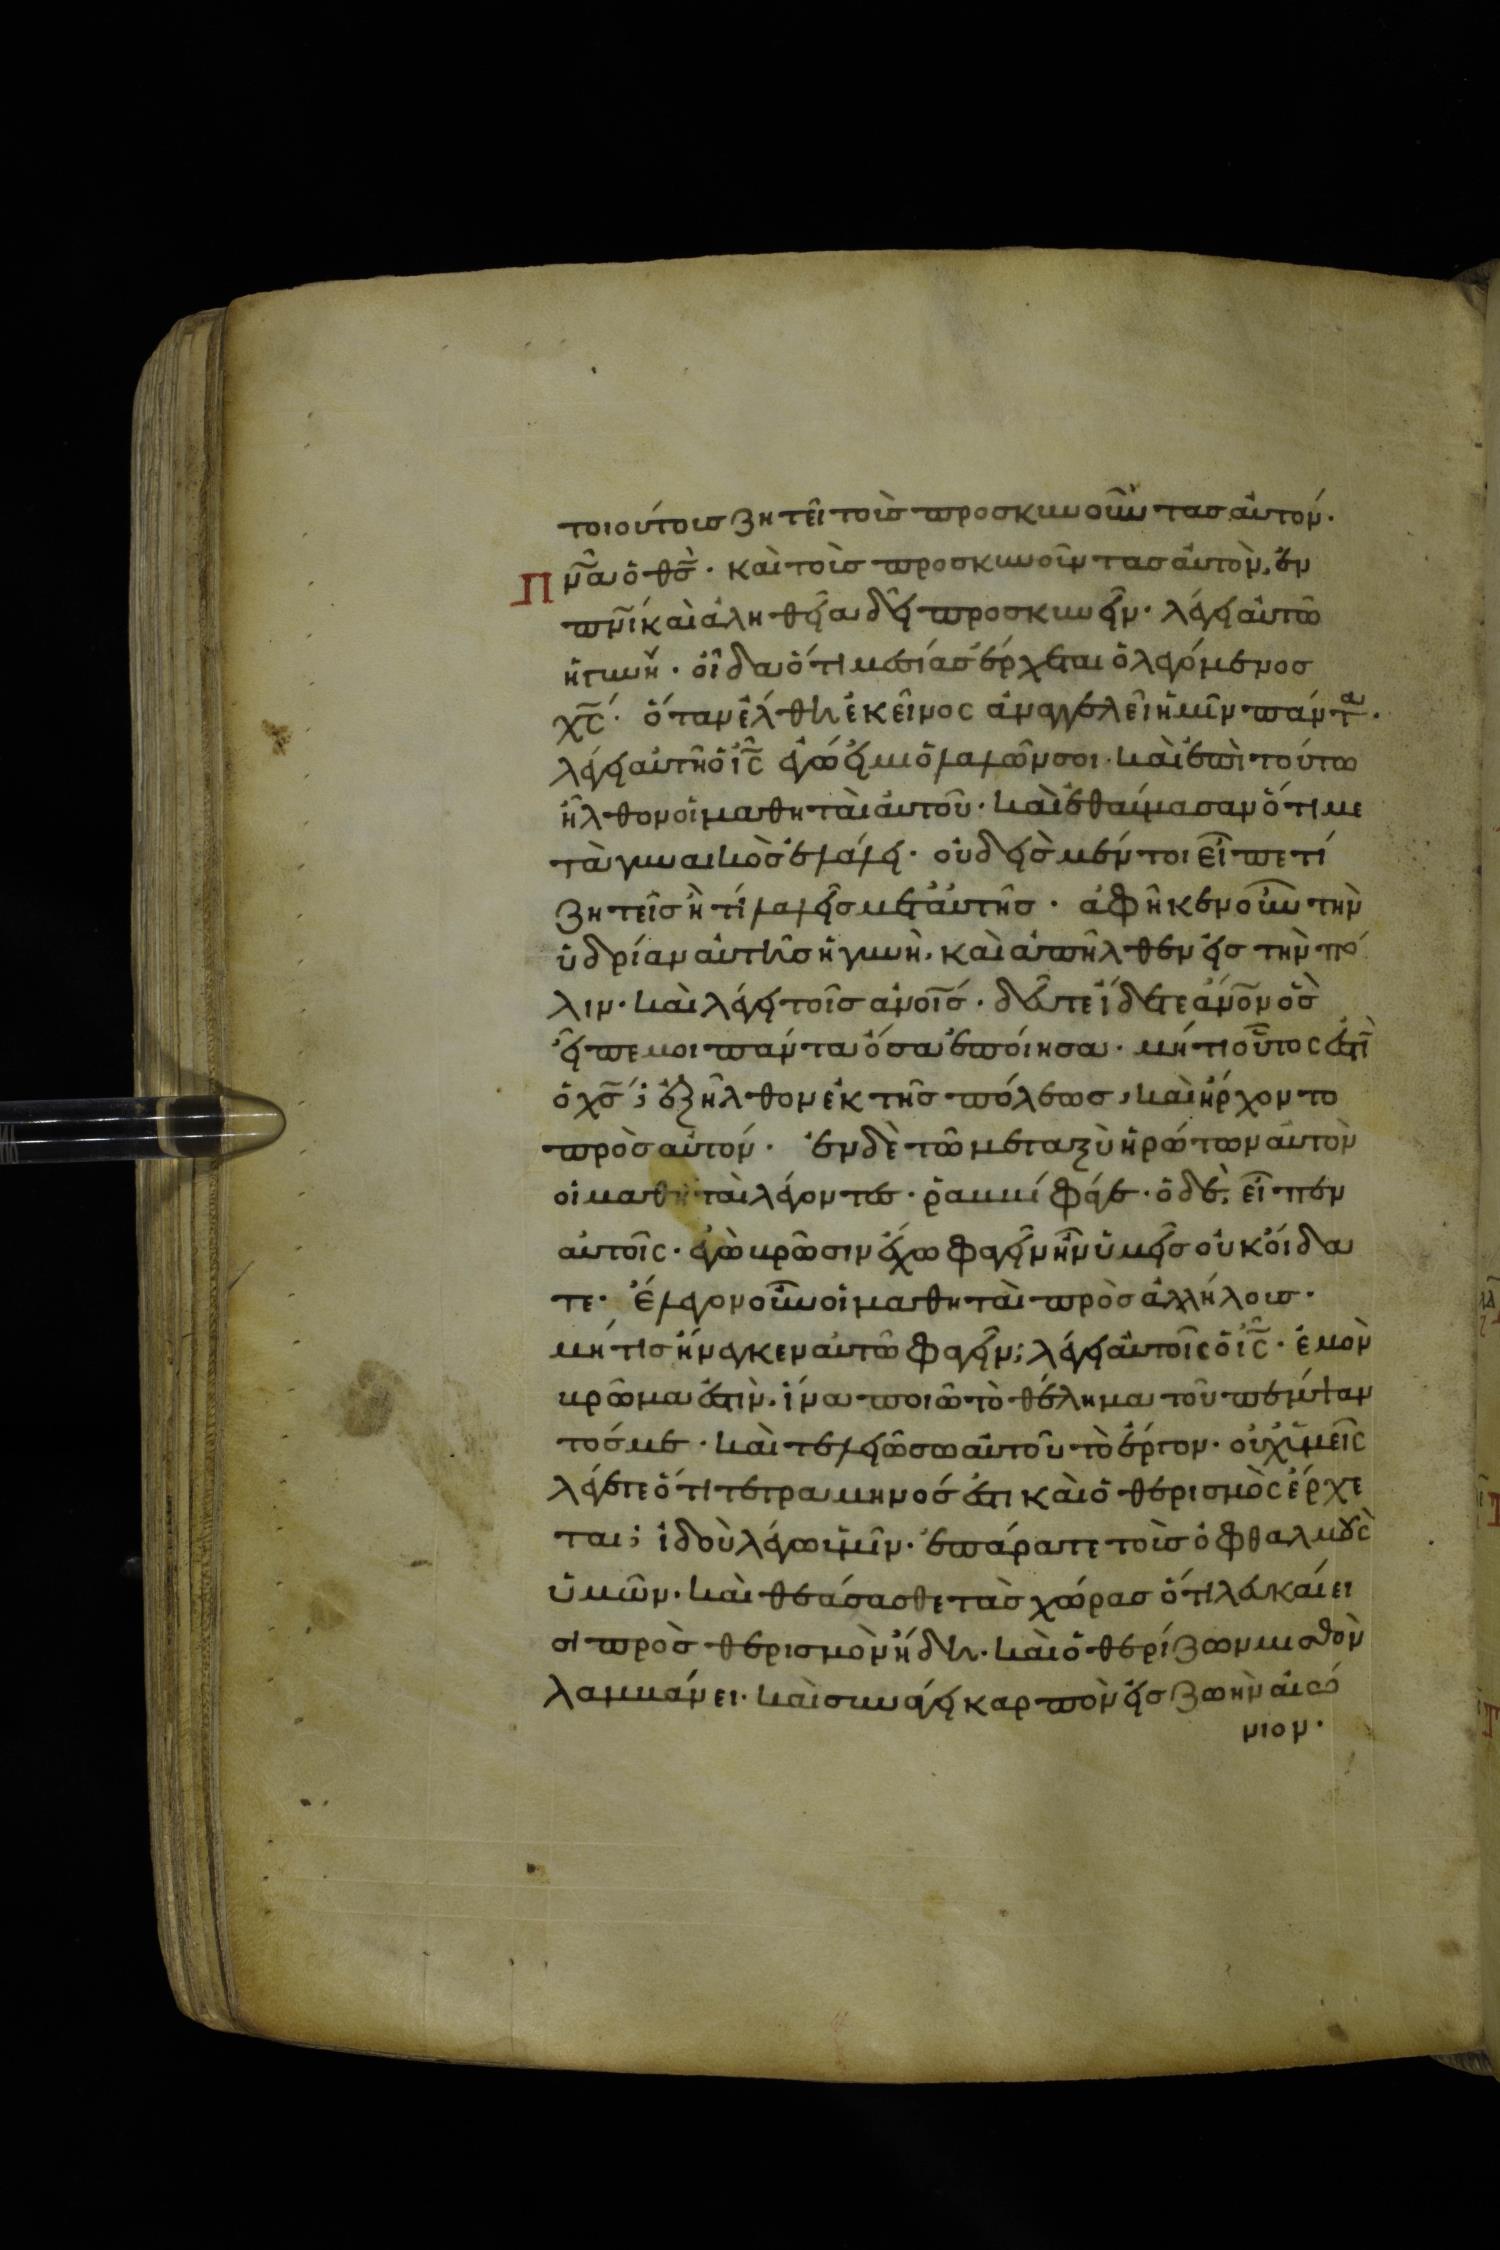 τοιούτους ζητεῖ τοὺς προσκυνοῦντας αὐτόν·
Πν̅α ὁ θς̅· καὶ τοὺς προσκυνοῦντας αὐτὸν, ἐν
πν̅ι καὶ ἀληθεία δεῖ προσκυνεῖν· λέγει αὐτῶ
ἡ γυνή· οἶδα ὅτι μεσίας ἔρχεται ὁ λεγόμενος
χς̅· ὅταν ἔλθη ἐκεῖνος ἀναγγελεῖ ἡμῖν πάντα·
λέγει αὐτῆ ὁ ις̅ ἐγώ εἰμι ὁ λαλῶν σοι· καὶ ἐπὶ τούτω
ἦλθον οἱ μαθηταὶ αὐτοῦ· καὶ ἐθαύμασαν ὅτι με
τὰ γυναικὸς ἐλάλει· οὐδεὶς μέντοι εἶπε τί
ζητεῖς ἢ τί λαλεῖς μετ' αὐτῆς· ἀφῆκεν οὖν τὴν
ὑδρίαν αὐτῆς ἡ γυνὴ, καὶ ἀπῆλθεν εἰς τὴν πό
λιν· καὶ λέγει τοῖς ἀνοις̅· δεῦτε ἴδετε ἀνον̅ ὃς
εἶπε μοι πάντα ὅσα ἐποίησα· μήτι οὗτος ἐστὶ
ὁ χς̅; ἐξῆλθον ἐκ τῆς πόλεως, καὶ ἤρχοντο
πρὸς αὐτόν· ἐν δὲ τῶ μεταξὺ ἠρώτων αὐτὸν
οἱ μαθηταὶ λέγοντες· ῥαββί φάγε· ὁ δὲ, εἶπεν
αὐτοῖς· ἐγὼ βρῶσιν ἔχω φαγεῖν ἣν ὑμεῖς οὐκ οἴδα
τε· ἔλεγον οὖν οἱ μαθηταὶ πρὸς ἀλλήλους·
μή τις ἤνεγκεν αὐτῶ φαγεῖν; λέγει αὐτοῖς ὁ ις̅· ἐμὸν
βρῶμα ἐστὶν, ἵνα ποιῶ τὸ θέλημα τοῦ πέμψαν
τός με· καὶ τελειῶσω αὐτοῦ τὸ ἔργον· οὐχ ὑμεῖς
λέγετε ὅτι τετραμηνος ἐστι καὶ ὁ θερισμὸς ἔρχε
ται; ἰδοὺ λέγω ὑμῖν· ἐπάρατε τοὺς ὀφθαλμοὺς
ὑμῶν· καὶ θεάσασθε τὰς χώρας ὅτι λευκαί εἰ
σι πρὸς θερισμὸν ἤδη· καὶ ὁ θερίζων μισθὸν
λαμβάνει· καὶ συνάγει καρπὸν εἰς ζωὴν αἰώ
νιον·